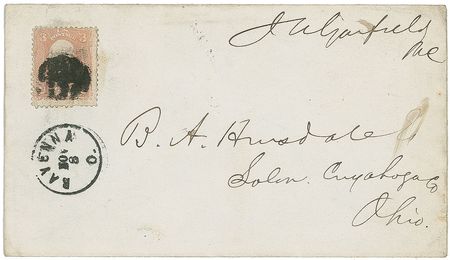 J A Garfield
MC
3 3
RAVENNA O.
NOV
8
B. A. Hinsdale
Solon. Cuyahoga Co
Ohio.